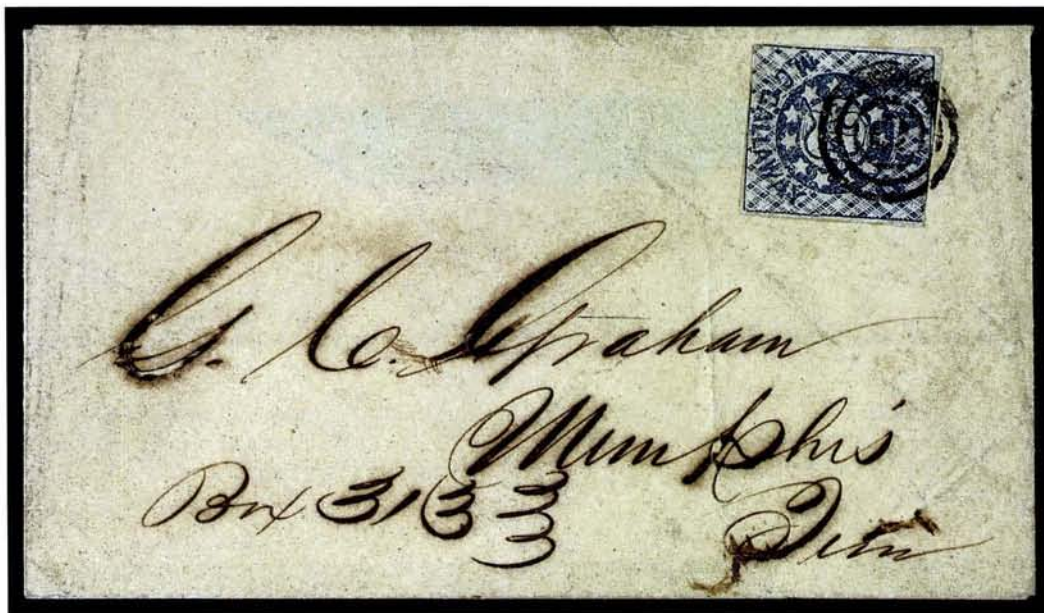 M.C.GALLAWAY
G. C. Graham
Memphis
Box 313
Tenn